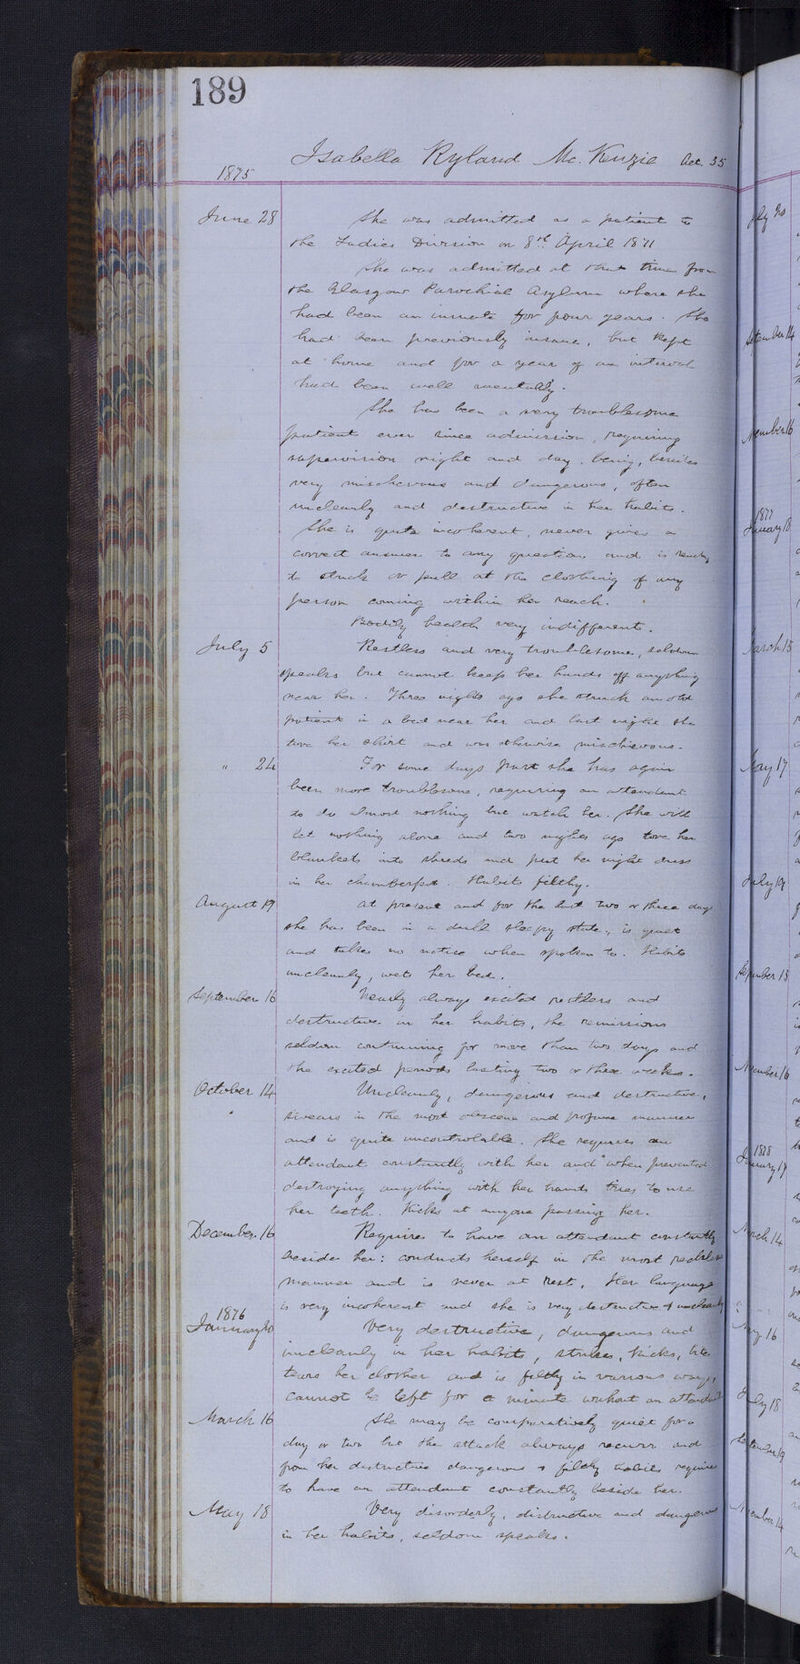 189
Isabella Ryland Mc. Kenzie Aet. 35
1875
June 28 She was admitted as a patient to
the Ladies Division on 8th April 1871
She was admitted at that time from
the Glasgow Parochial Asylum where she
had been an inmate for four years. She
had been previously insane, but kept
at home and for a year of an interval
had been well mentally.
She has been a very troublesome
patient ever since admission, requiring
supervision night and day, being, besides
very mischievous and dangerous, often
uncleanly and destructive in her habits.
She is quite incoherent, never gives a
correct answer to any question and is ready
to struck or pull at the clothing of any
person coming within her reach.
Bodily health very indifferent.
July 5 Restless and very troublesome, seldom
speaks but cannot keep her hands off anything
near her. Three nights ago she struck an old
patient in a bed near her and last night she
tore her shirt and was otherwise mischievous.
" 24 For some days past she has again
been more troublesome, requiring an attendant
to do almost nothing but watch her. She will
let nothing alone and two nights ago tore her
blankets into shreds and put her night dress
in her chamberpot. Habits filthy.
August 19 At present and for the last two or three days
she has been in a dull sleepy state, is quiet
and takes no notice when spoken to. Habits
uncleanly, wets her bed.
September 16 Nearly always excited restless and
destructive in her habits, the remissions
seldom continuing for more than two days and
the excited periods lasting two or three weeks.
October 14 Uncleanly, dangerous and destructive,
swears in the most obscene and profane manner
and is quite uncontrolable. She requires an
attendant constantly with her and when prevented
destroying anything with her hands tries to use
her teeth. Kicks at anyone passing her.
December 16 Requires to have an attendant constantly
beside her: conducts herself in the most reckless
manner and is never at rest. Her language
is very incoherent and she is very destructive & uncleanly
1876
January 20 Very destructive, dangerous and
uncleanly in her habits, strikes, kicks, bites
tears her clothes and is filthy in various ways,
cannot be left for a minute without an attendant
March 16 She may be comparatively quiet for a
day or two but the attack always recurs and
from her destructive dangerous & filthy habits requires
to have an attendant constantly beside her.
May 18 Very disorderly, destructive and dangerous
in her habits, seldom speaks.
1877
March 15
May 17
July 19
1878
March 14
July 18